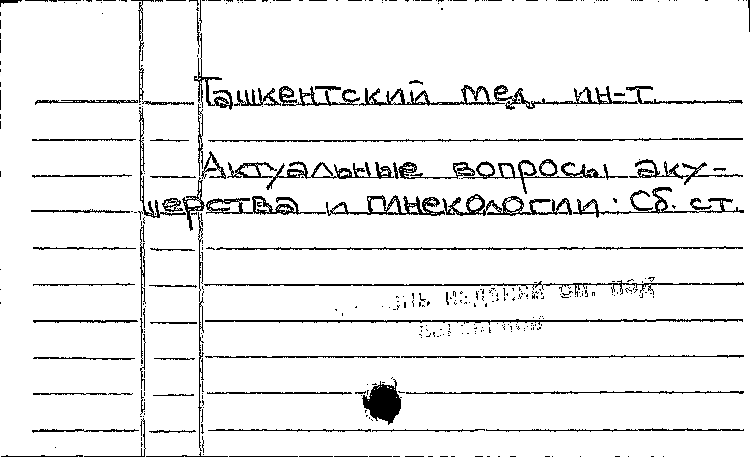 Ташкентский мед. ин-т.
Актуальные вопросы аку-
шерства и гинекологии. Сб. ст.
изданий см. под